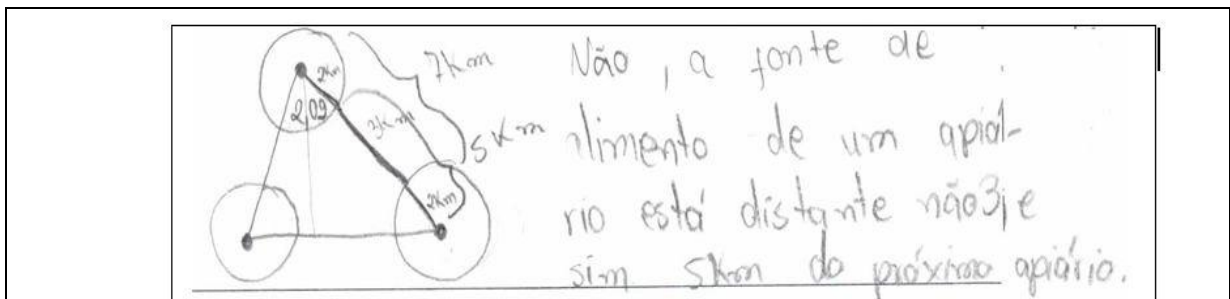 2km
2,09
3km
2km
7km
5km
Não, a fonte de
alimento de um apiá-
rio está distante não 3, e
sim 5km do próximo apiário.